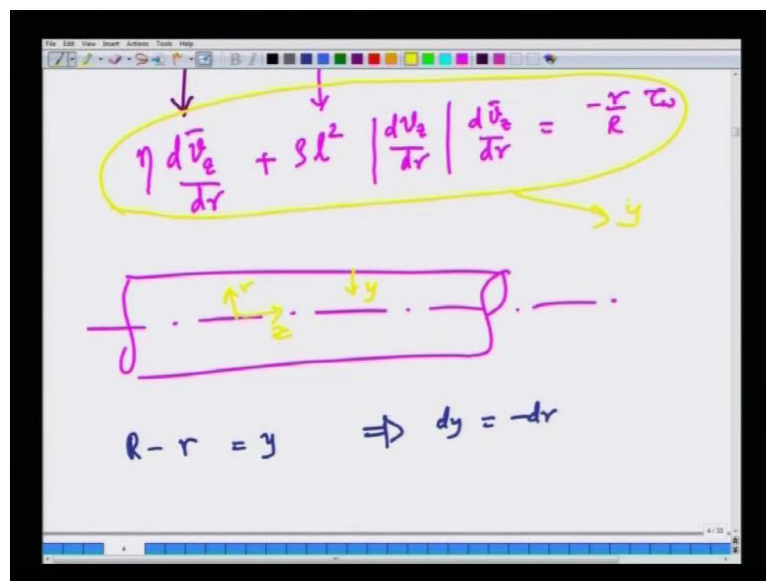 File Edit View Insert Actions Tools Help
B I
η dv̄_z/dr + ρl² |dv_z/dr| dv̄_z/dr = -r/R τ_w
y
r y
z
R - r = y ⇒ dy = -dr
4